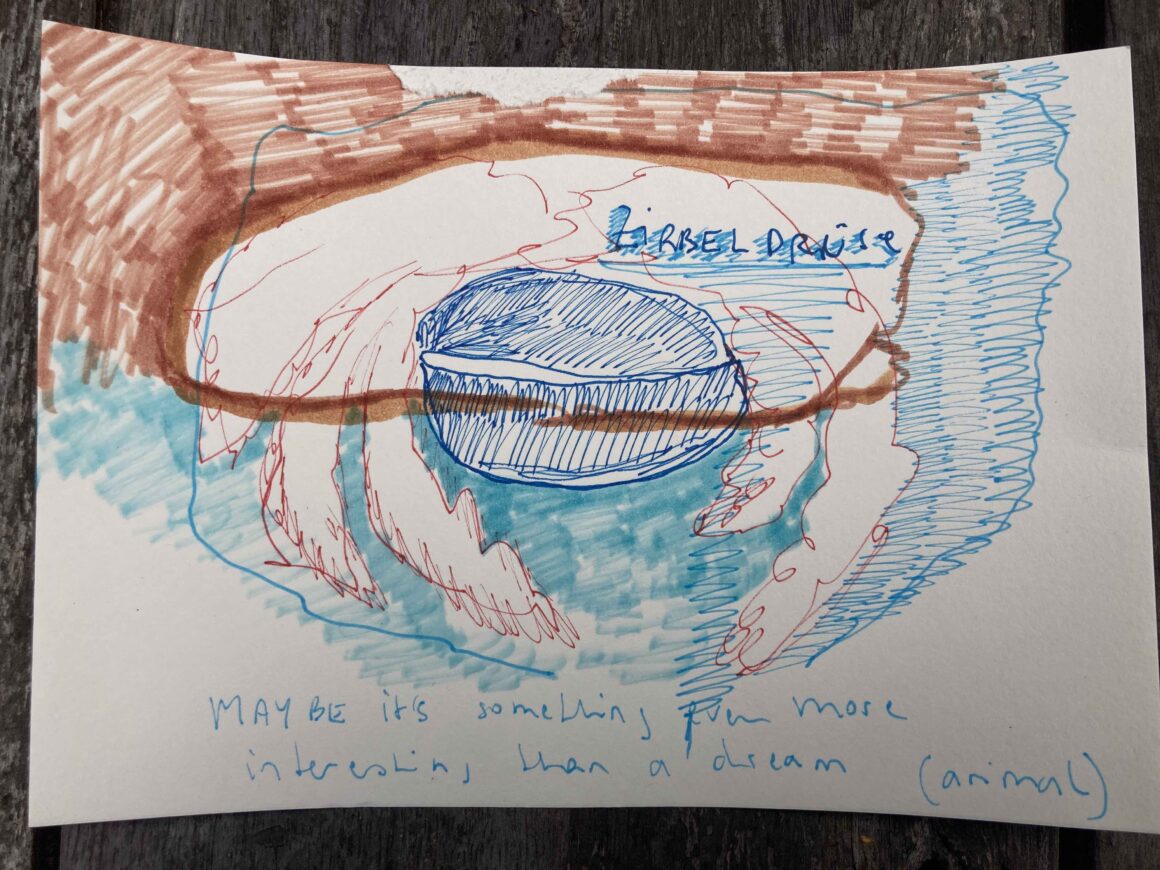 ZiRBELDRÜSe
MAYBE it's something even more
interesting than a dream (animal)